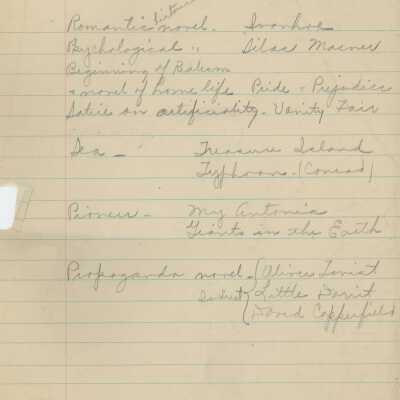 Romantic novel. Ivanhoe
Psychological " Silas Marner
Beginning of Realism
a novel of home life Pride & Prejudice
Satire on artificiality - Vanity Fair
Sea - Treasure Island
Typhoon. (Conrad)
Pioneer - My Antonia
Giants in the Earth
Propaganda novel. Oliver Twist
Little Dorrit
David Copperfield